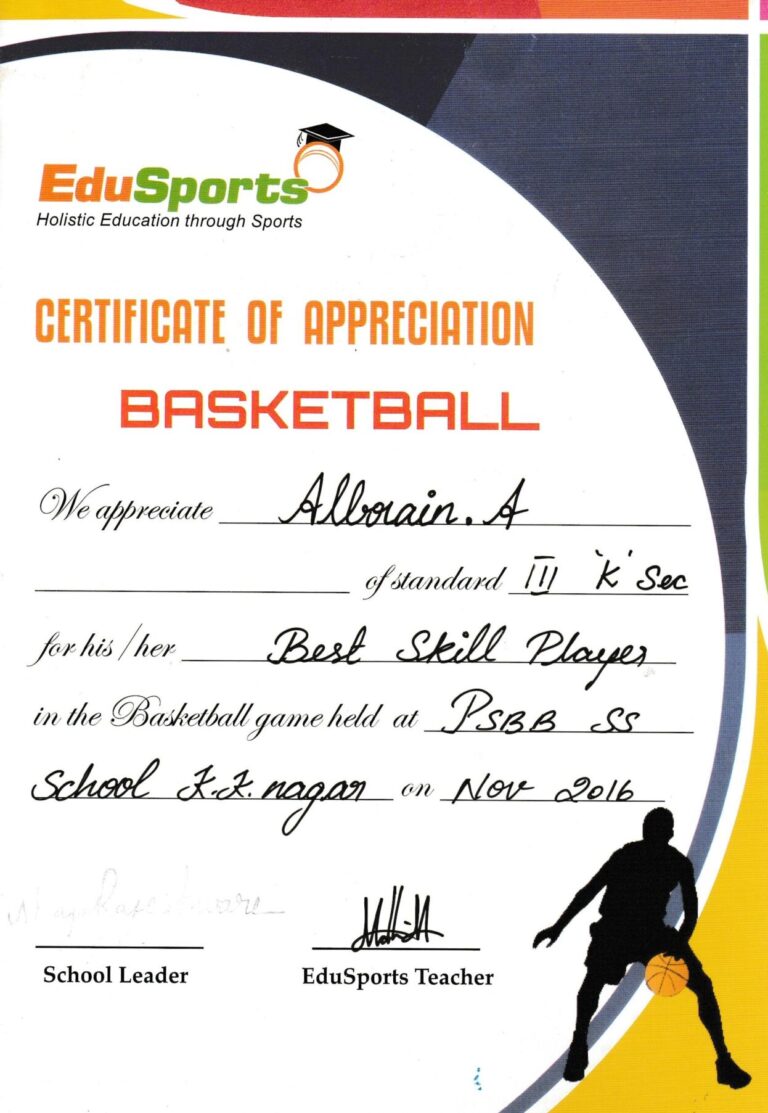 EduSports
Holistic Education through Sports
CERTIFICATE OF APPRECIATION
BASKETBALL
We appreciate Alborain. A
of standard III 'K' Sec
for his/her Best Skill Player
in the Basketball game held at PSBB SS
School K.K. nagar on Nov 2016
School Leader
EduSports Teacher